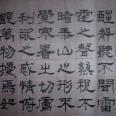 醒靜聽不聞雷
霆之聲熟視不
睹泰山之形不
覺寒暑之切肌
利欲之感情俯
觀萬物擾焉如